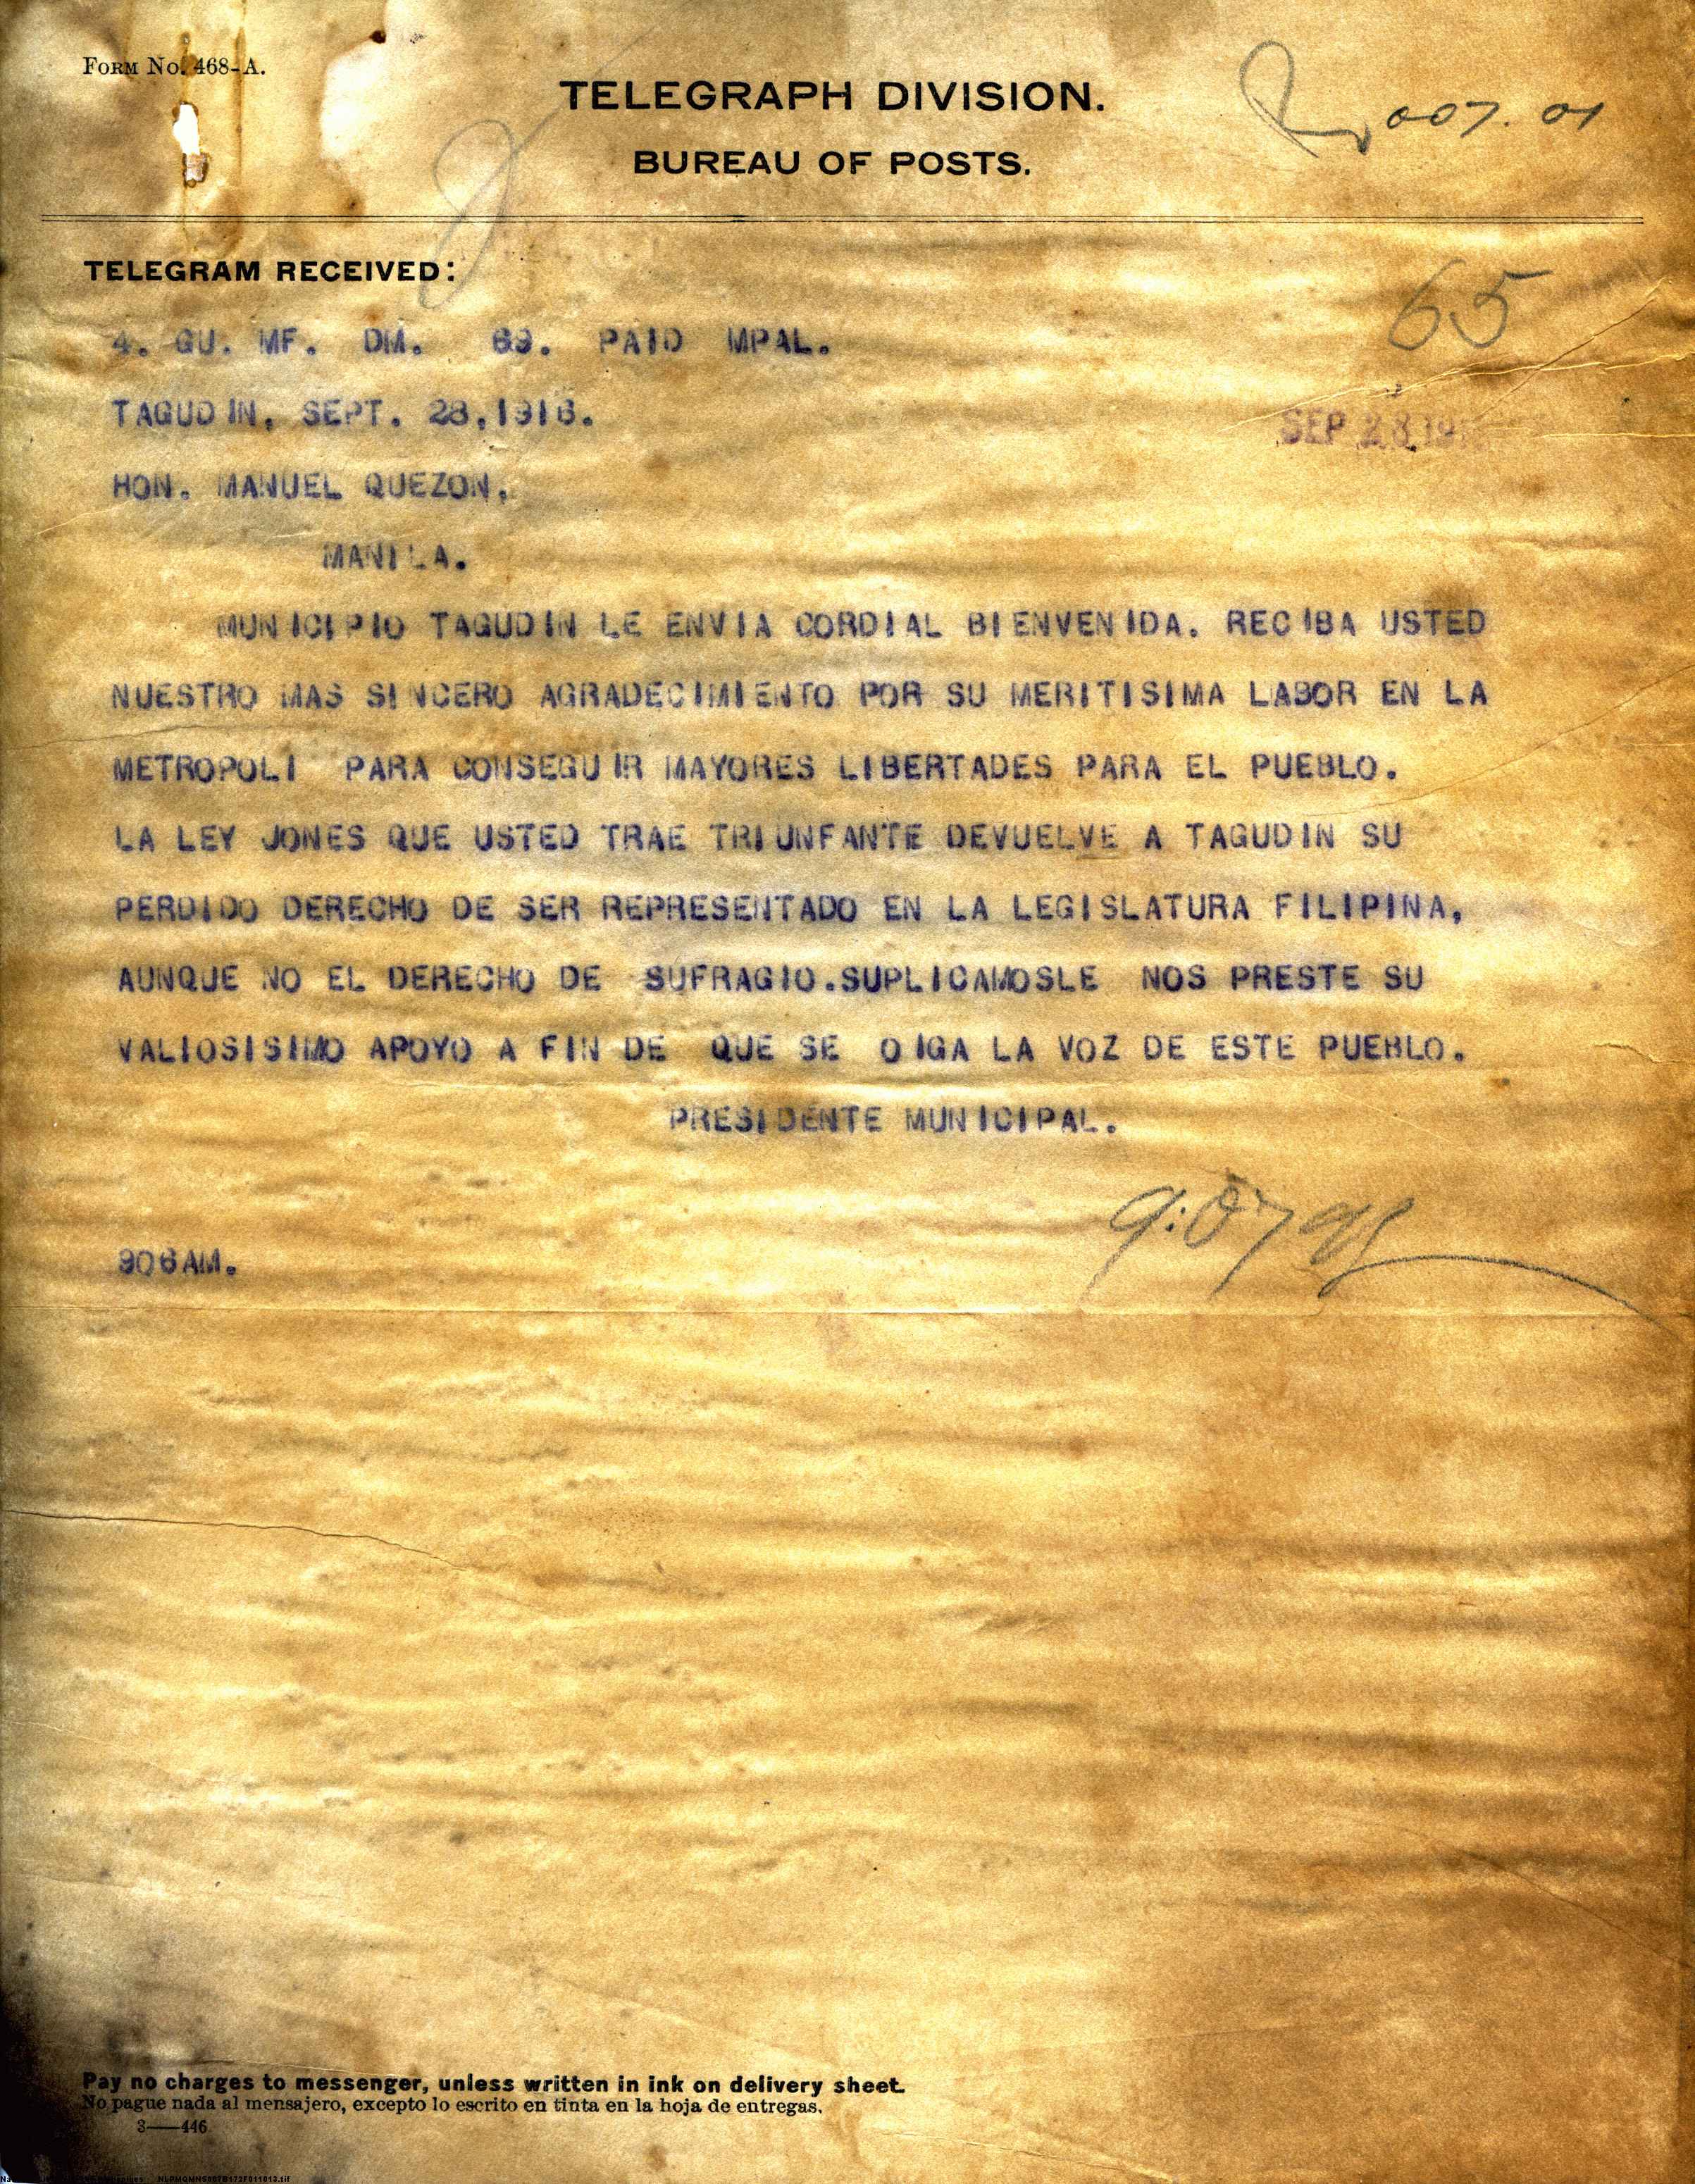 FORM No. 468-A.
TELEGRAPH DIVISION.
BUREAU OF POSTS.
007.01
TELEGRAM RECEIVED:
65
4. GU. MF. DM. 69. PAID MPAL.
TAGUDIN, SEPT. 28,1916.
SEP 28 19
HON. MANUEL QUEZON,
MANILA.
MUNICIPIO TAGUDIN LE ENVIA CORDIAL BIENVENIDA. RECIBA USTED
NUESTRO MAS SINCERO AGRADECIMIENTO POR SU MERITISIMA LABOR EN LA
METROPOLI PARA CONSEGUIR MAYORES LIBERTADES PARA EL PUEBLO.
LA LEY JONES QUE USTED TRAE TRIUNFANTE DEVUELVE A TAGUDIN SU
PERDIDO DERECHO DE SER REPRESENTADO EN LA LEGISLATURA FILIPINA,
AUNQUE NO EL DERECHO DE SUFRAGIO.SUPLICAMOSLE NOS PRESTE SU
VALIOSISIMO APOYO A FIN DE QUE SE OIGA LA VOZ DE ESTE PUEBLO.
PRESIDENTE MUNICIPAL.
9:07
906AM.
Pay no charges to messenger, unless written in ink on delivery sheet.
No pague nada al mensajero, excepto lo escrito en tinta en la hoja de entregas.
3——446